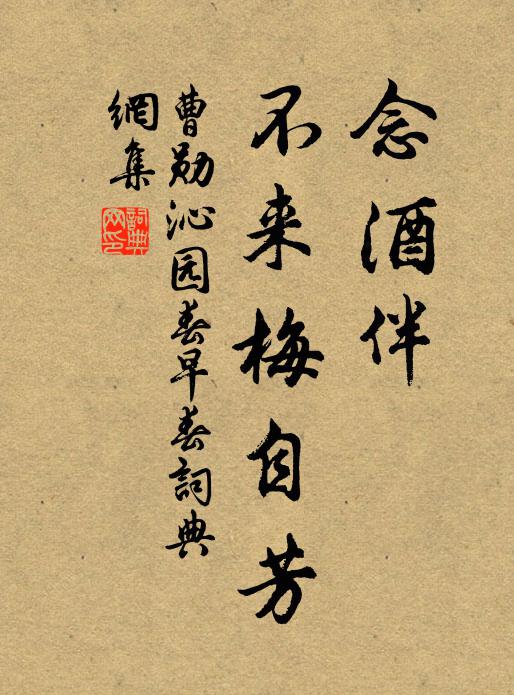 念酒伴
不来梅自芳
曹勋沁园春早春詞典
網集
詞典
网印